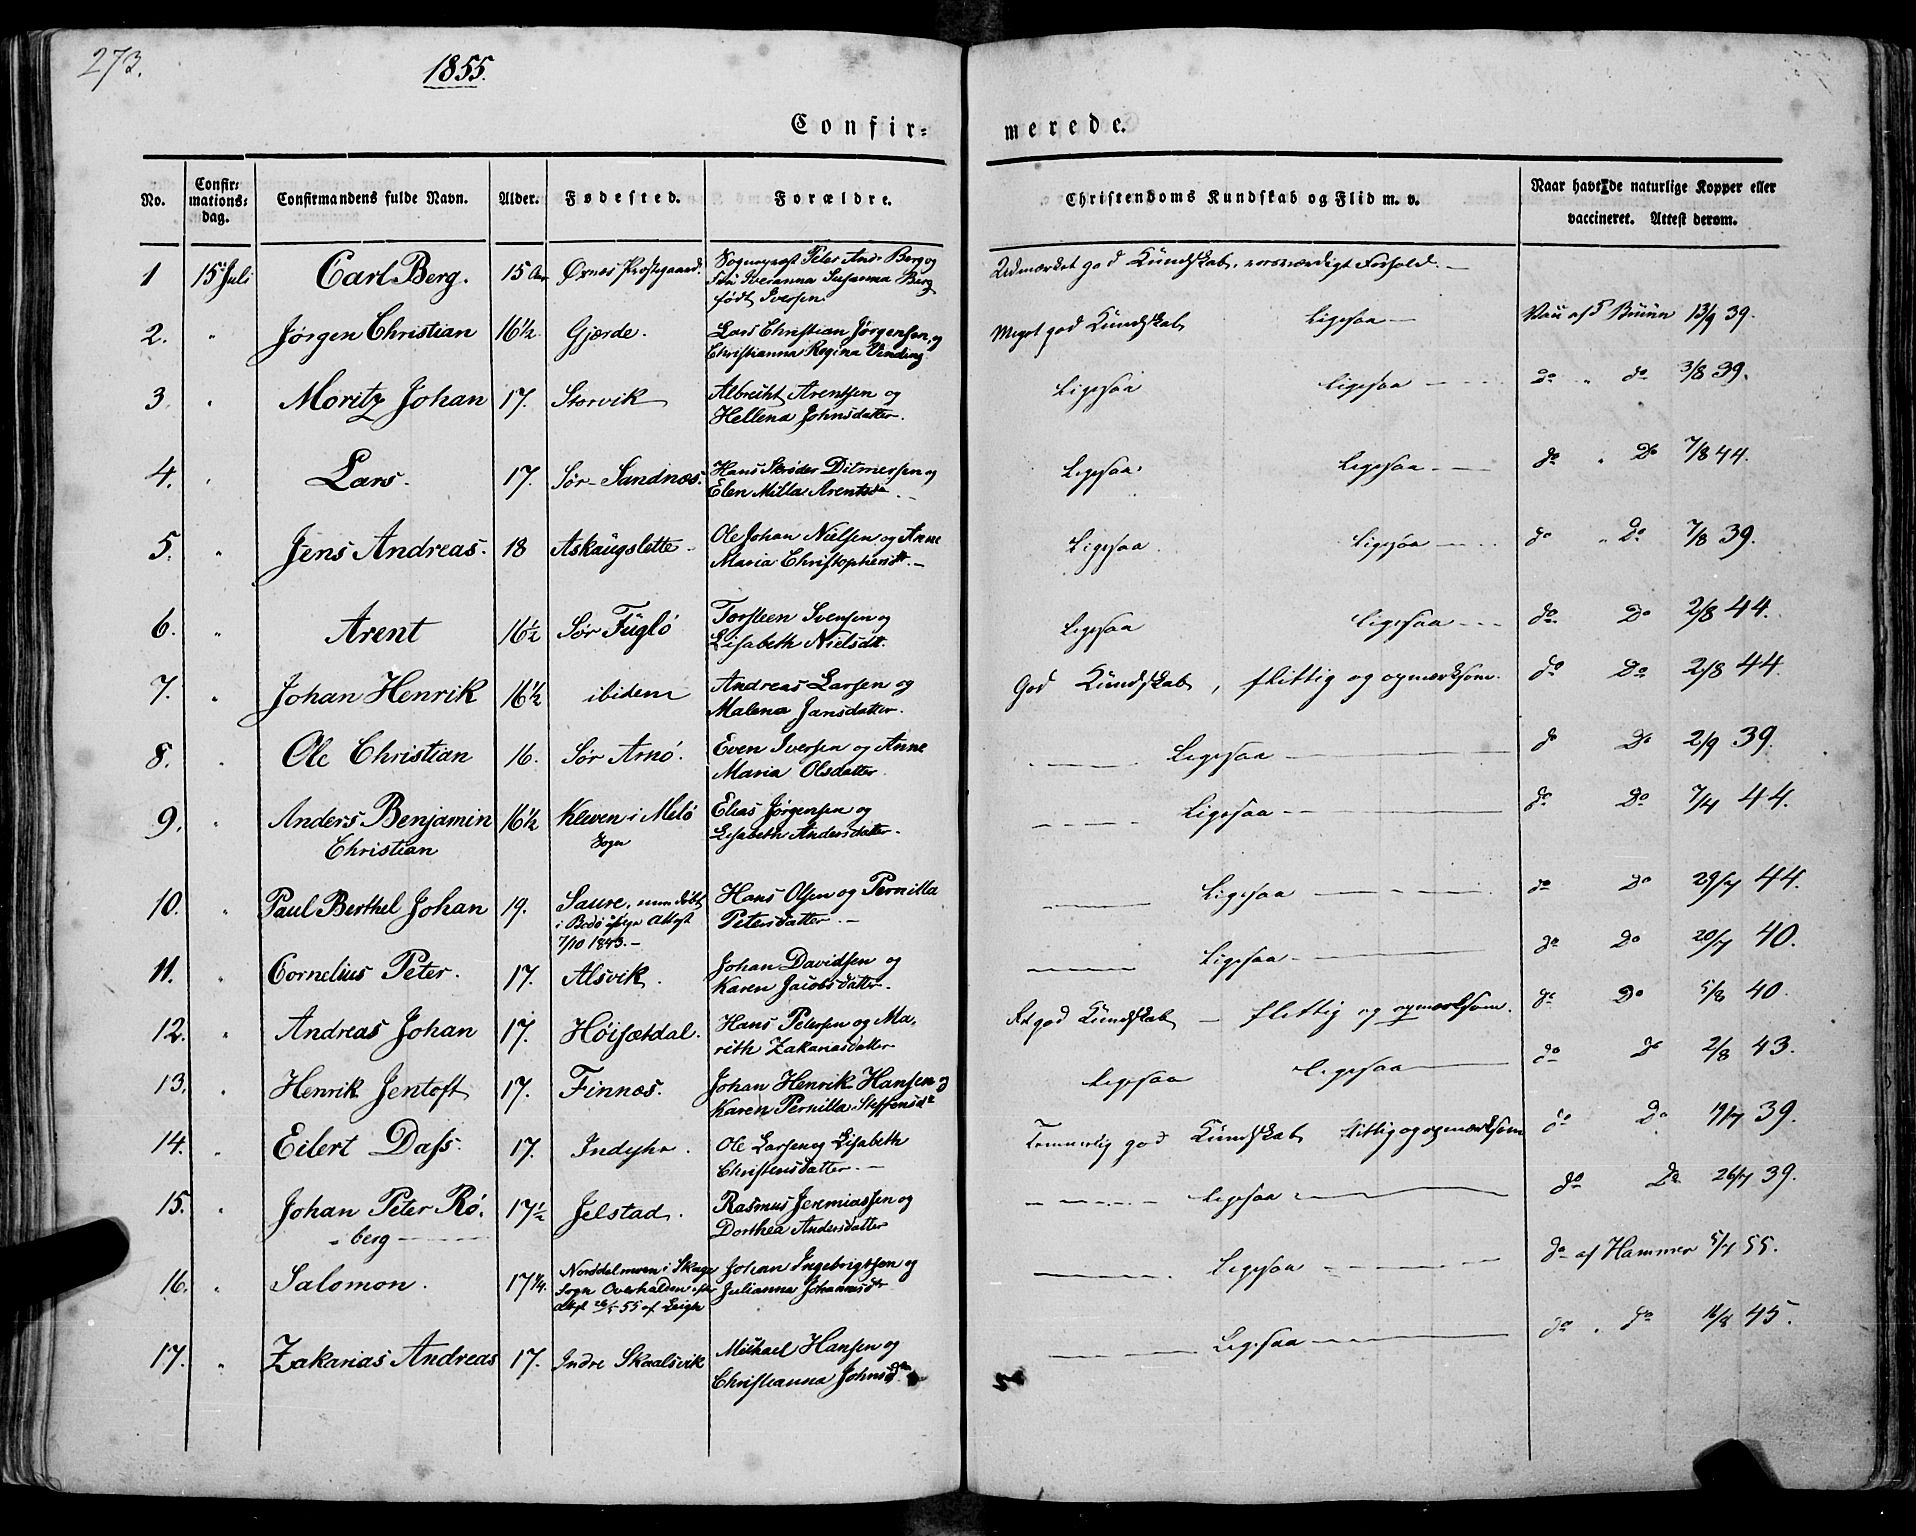 273.
1855.
Confir=
merede.
No.
Confir=
mations=
dag.
Confirmandens fulde Navn.
Alder.
Fødested.
Forældre.
Christendoms Kundskab og Flid m. v.
Naar havt de naturlige Kopper eller
vaccineret. Attest derom.
1 15 Juli Carl Berg. 15 Aar Ørnes Sognepræst Peter And: Berg og
Susanna Berg
født Iversen. Udmærket god Kundskab, Forhold. —
2. " Jørgen Christian 16½ Gjærde. Lars Christian Jørgensen, og
Christianna Regina Vinding Meget god Kundskab Ligesaa — af Brunn 13/9 39.
3. " Moritz Johan 17. Storvik Albrecht Arentsen og
Hellena Johnsdatter. Ligesaa Ligesaa — do " do 3/8 39.
4. " Lars. 17. Sør-Sandnæs. Hans Skrøder Ditmersen og
Elen Milla Arentsd. Ligesaa Ligesaa — do " Do 7/8 44.
5. " Jens Andreas. 18 Askaugslette Ole Johan Nielsen og Anne
Maria Christophersdt. — Ligesaa Ligesaa — do " Do 7/8 39.
6. " Arent 16½ Sør Fuglø Torsteen Svensen og
Lisabeth Nielsdtt. Ligesaa Ligesaa — do Do 2/8 44.
7. " Johan Henrik 16½ ibidem Andreas Larsen og
Malena Jansdatter. God Kundskab, flittig og opmærksom. do Do 2/8 44.
8. " Ole Christian 16. Sør Arnö. Even Iversen og Anne
Maria Olsdatter. — Ligesaa — do Do 2/9 39.
9. " Anders Benjamin
Christian 16½ Kleven i Melö
Sogn Elias Jørgensen og
Lisabeth Andersdatter. — Ligesaa — do Do 7/7 44.
10. " Paul Berthel Johan 19. Saure, men døbt
i Bodö Attest
7/10 1843. — Hans Olsen og Pernilla
Petersdatter. — — Ligesaa — do Do 29/7 44.
11. " Cornelius Peter. 17. Alsvik. Johan Davidsen og
Karen Jacobsdatter. — Ligesaa — do Do 20/7 40.
12. " Andreas Johan 17. Høisætdal. Hans Petersen og Ma-
rith Zakariasdatter god Kundskab — flittig og opmærksom. do Do 5/8 40.
13. " Henrik Jentoft 17. Finnæs. Johan Henrik Hansen og
Karen Pernilla Steffensdr Ligesaa Ligesaa — do Do 2/8 43.
14. " Eilert Dass. 17. Indyhr. Ole Larsen og Lisabeth
Christensdatter. — Temmelig god Kundskab flittig og opmærksom do Do 19/7 39.
15. " Johan Peter Rö-
berg — 17½ Jelstad. Rasmus Jeremiassen og
Dorthea Andersdatter — Ligesaa — do Do 26/7 39.
16. " Salomon. 17¼. i
Sogn Overhalden
55 af Johan Ingebrigtsen og
Julianna Johannesdr — Ligesaa — do af Hammer 5/7 55.
17. " Zakarias Andreas 17. Indre Skaalsvik Michael Hansen og
Christianna Johnsdr — Ligesaa — do " do 16/8 45.